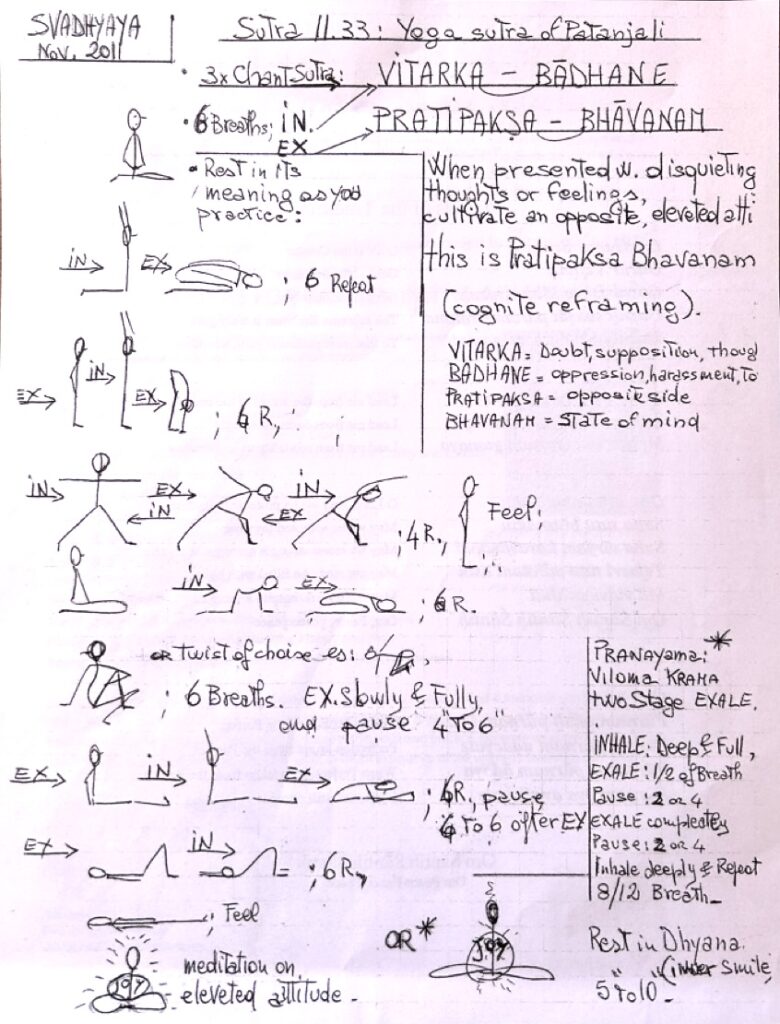 SVADHYAYA
Nov. 2011
Sutra II.33: Yoga sutra of Patanjali
• 3x Chant Sutra: VITARKA – BĀDHANE
• 6 Breaths; IN. PRATIPAKṢA – BHĀVANAM
EX
• Rest in its
meaning as you
practice:
When presented w. disquieting
thoughts or feelings,
cultivate an opposite, eleveted atti
this is Pratipaksa Bhavanam
(cognite reframing).
VITARKA = Doubt, supposition, though
BADHANE = oppression, harassment, To
PRATIPAKSA = opposite side
BHAVANAM = State of mind
IN EX ; 6 Repeat
EX IN EX ; R,
IN EX IN ; 4 R., Feel.
IN EX
IN EX ; 6R.
or twist of choixe es:
; 6 Breaths. EX. Slowly & Fully,
and pause 4" To 6
EX IN EX ; 6R, pause
4 To 6 after EX
EX IN ; 6R,
; Feel
JOY
meditation on
eleveted attitude.
OR *
JOY
PRANAYAMA: *
Viloma KRAMA
two Stage EXALE.
INHALE: Deep & Full,
EXALE: 1/2 of Breath
Pause: 2 or 4
EXALE compleately
Pause: 2 or 4
Inhale deeply & Repeat
8/12 Breath.
Rest in Dhyana.
" " (inner Smile)
5 to 10.